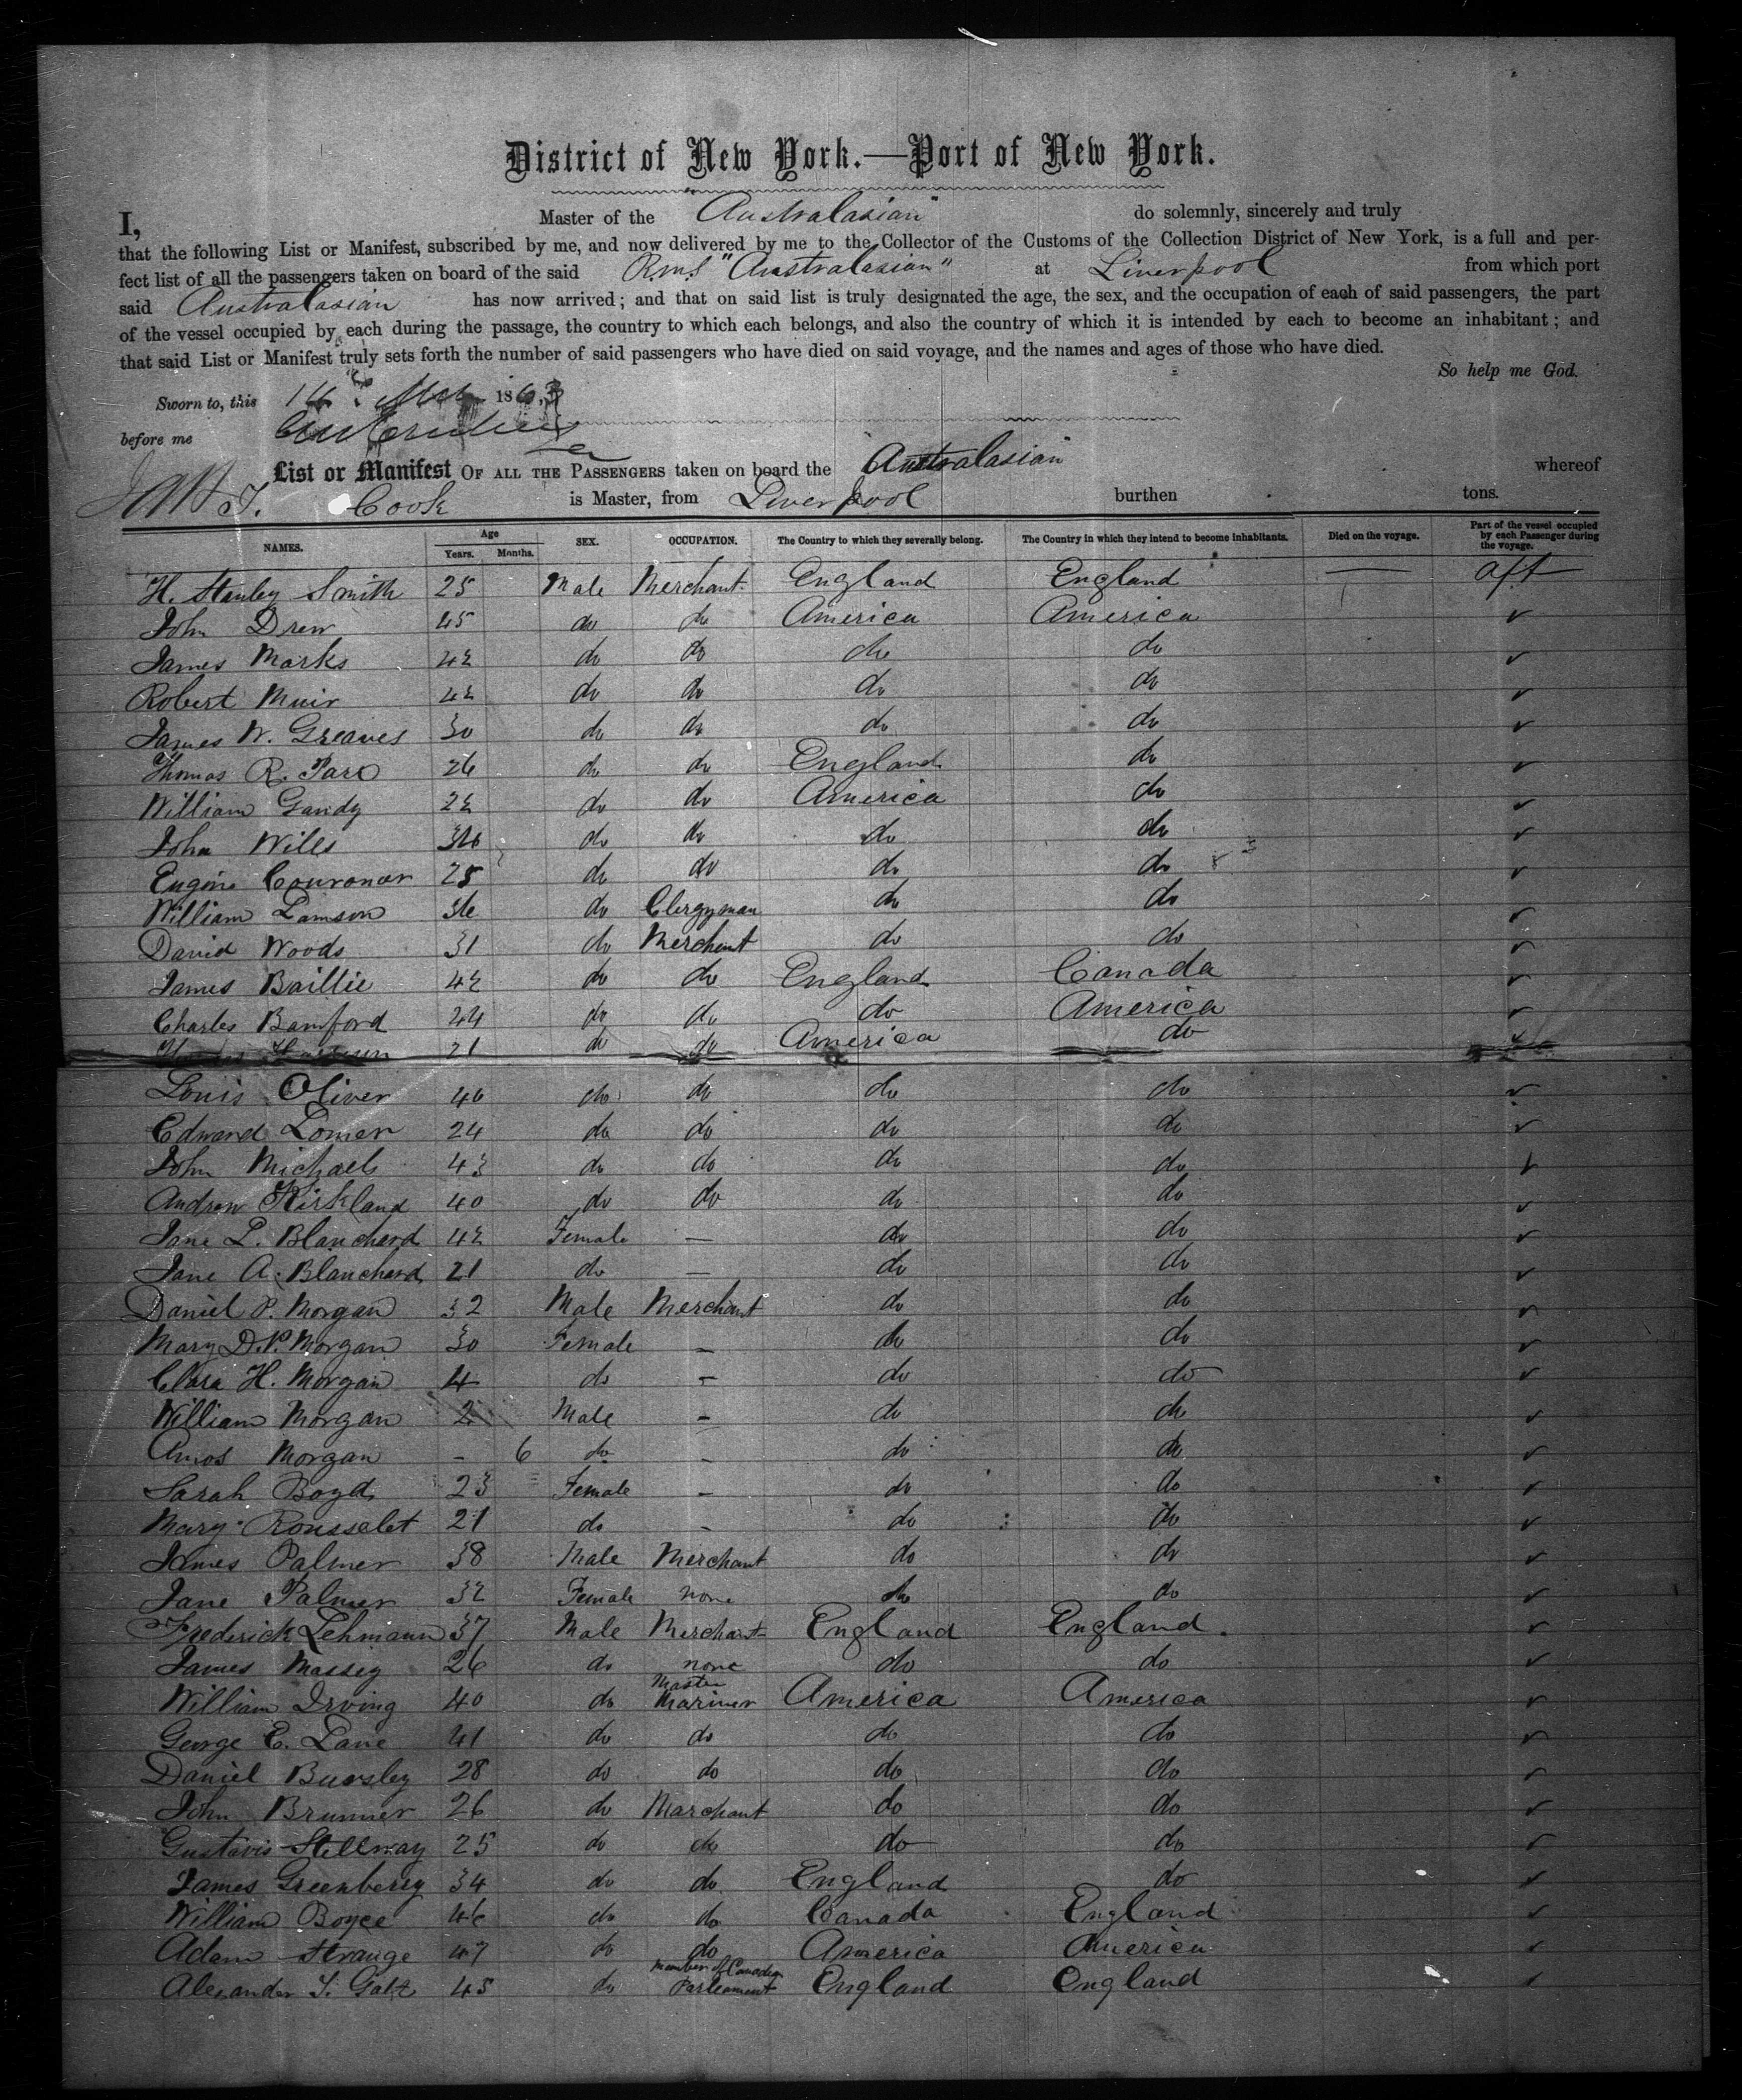 District of New York.—Port of New York.
I, Master of the "Australasian" do solemnly, sincerely and truly
that the following List or Manifest, subscribed by me, and now delivered by me to the Collector of the Customs of the Collection District of New York, is a full and per-
fect list of all the passengers taken on board of the said R.M.S "Australasian" at Liverpool from which port
said Australasian has now arrived; and that on said list is truly designated the age, the sex, and the occupation of each of said passengers, the part
of the vessel occupied by each during the passage, the country to which each belongs, and also the country of which it is intended by each to become an inhabitant; and
that said List or Manifest truly sets forth the number of said passengers who have died on said voyage, and the names and ages of those who have died.
So help me God.
Sworn to, this 1863
before me
List or Manifest OF ALL THE PASSENGERS taken on board the "Australasian" whereof
Cook is Master, from Liverpool burthen tons.
NAMES. Age Years. Months. SEX. OCCUPATION. The Country to which they severally belong. The Country in which they intend to become inhabitants. Died on the voyage. Part of the vessel occupied by each Passenger during the voyage.
H. Stanley Smith 25 Male Merchant England England — aft
John Drew 45 do do America America ✓
James Marks 42 do do do do ✓
Robert Muir 42 do do do do ✓
James W. Greaves 30 do do do do ✓
Thomas R. 26 do do England do ✓
William Gandy 22 do do America do ✓
John Wills do do do do ✓
Eugine 25 do do do do ✓
William Lamson 36 do Clergyman do do ✓
David Woods 31 do Merchant do do ✓
James Baillie 42 do do England Canada ✓
Charles Bamford 44 do do do America ✓
21 do do America do
Louis Oliver 40 do do do do ✓
Edward Lomer 24 do do do do ✓
John Michaels 43 do do do do ✓
Andrew Kirkland 40 do do do do ✓
Jane L. Blanchard 42 Female — do do ✓
Jane A. Blanchard 21 do — do do ✓
Daniel P. Morgan 32 Male Merchant do do ✓
Mary D.P. Morgan 30 Female — do do ✓
Clara H. Morgan 4 do — do do ✓
William Morgan 2 Male — do do ✓
Amos Morgan - 6 do - do do ✓
Sarah Boyd 23 Female — do do ✓
Mary Rousselet 21 do - do do ✓
James Palmer 38 Male Merchant do do ✓
Jane Palmer 32 Female none do do ✓
Frederick Lehmann 37 Male Merchant England England ✓
James Massey 26 do none do do ✓
William Irving 40 do Master Mariner America America ✓
George E. Lane 41 do do do do ✓
Daniel Bursley 28 do do do do ✓
John Brunner 26 do Marchant do do ✓
Gustavis Stellway 25 do do do do ✓
James Greenberry 34 do do England do ✓
William Boyce 46 do do Canada England ✓
Adam Strange 47 do do America America ✓
Alexander T. Galt 45 do Member of Canadian Parleament England England ✓